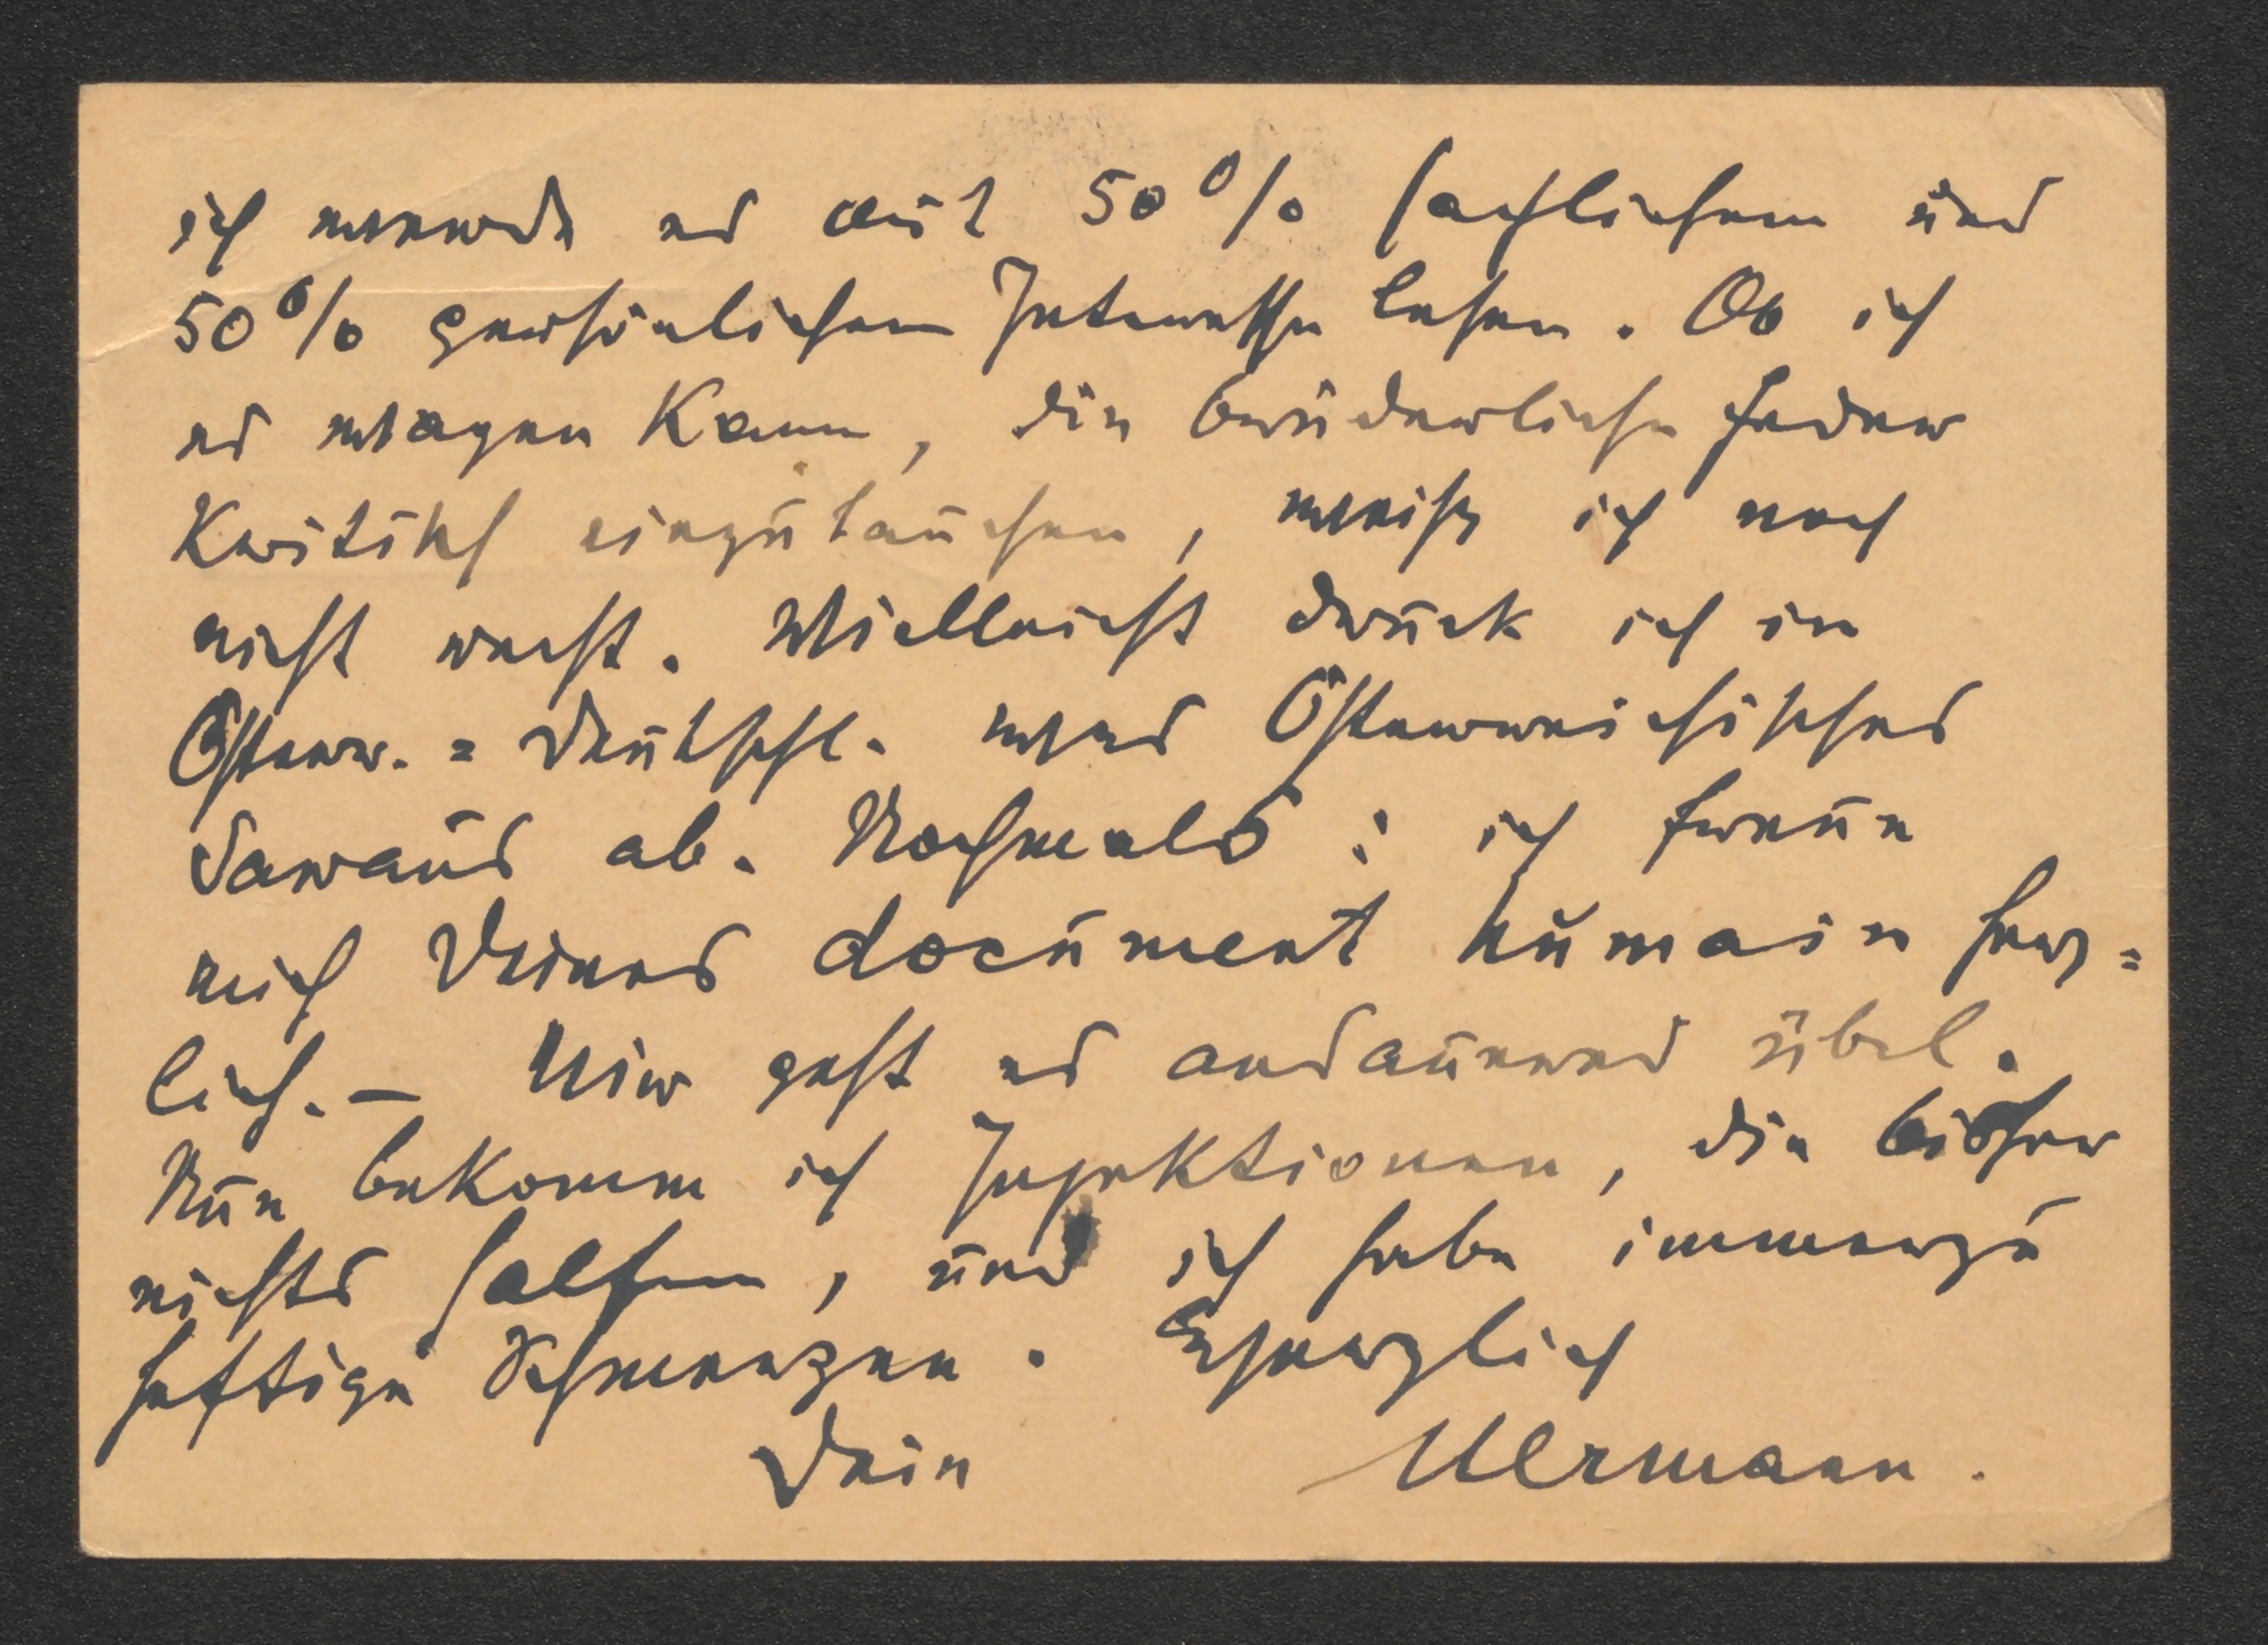 ich werde es mit 50% sachlichem und
50% persönlichem Interesse lesen. Ob ich
es wagen kann, die brüderliche Feder
kritisch einzutauchen, weiß ich noch
nicht recht. Vielleicht druck ich in
Österr.=Deutschl. was Österreichisches
daraus ab. Nochmals: ich freue
mich Deines document humain herz=
lich. – Mir geht es andauernd übel.
Nun bekomm ich Injektionen, die bisher
nichts halfen, und ich habe immerzu
heftige Schmerzen. Herzlich
Dein Hermann.